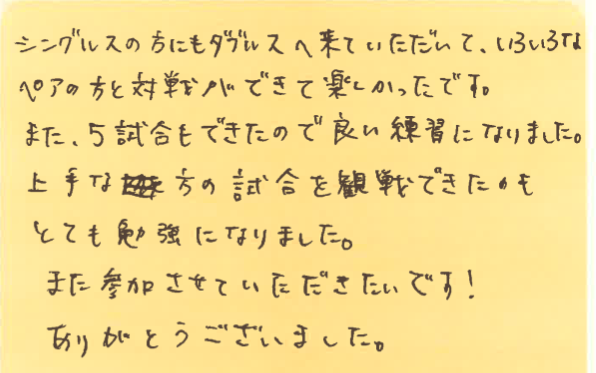 シングルスの方にもダブルスへ来ていただいて、いろいろな
ペアの方と対戦ができて楽しかったです。
また、5試合もできたので良い練習になりました。
上手な方の試合を観戦できたのも
とても勉強になりました。
また参加させていただきたいです!
ありがとうございました。